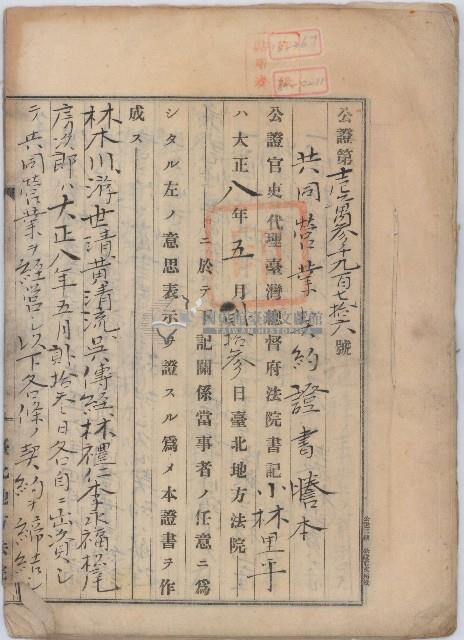 公證第壹六萬參千九百七拾六號
共同營業契約證書謄本
公證官吏代理臺灣總督府法院書記小林里平
ハ大正八年五月貳拾參日臺北地方法院
ニ於テ記關係當事者ノ任意ニ爲
シタル左ノ意思表示ヲ證スル爲メ本證書ヲ作
成ス
林木川、游世清、黃清流、吳傳經、林禮仁、李永福、松尾
房次郎ハ大正八年五月貳拾參日各自ニ出資シ
テ共同營業ヲ經營シ以下各條ノ契約ヲ締結シ
國史館臺灣文獻館
TAIWAN HISTORICA